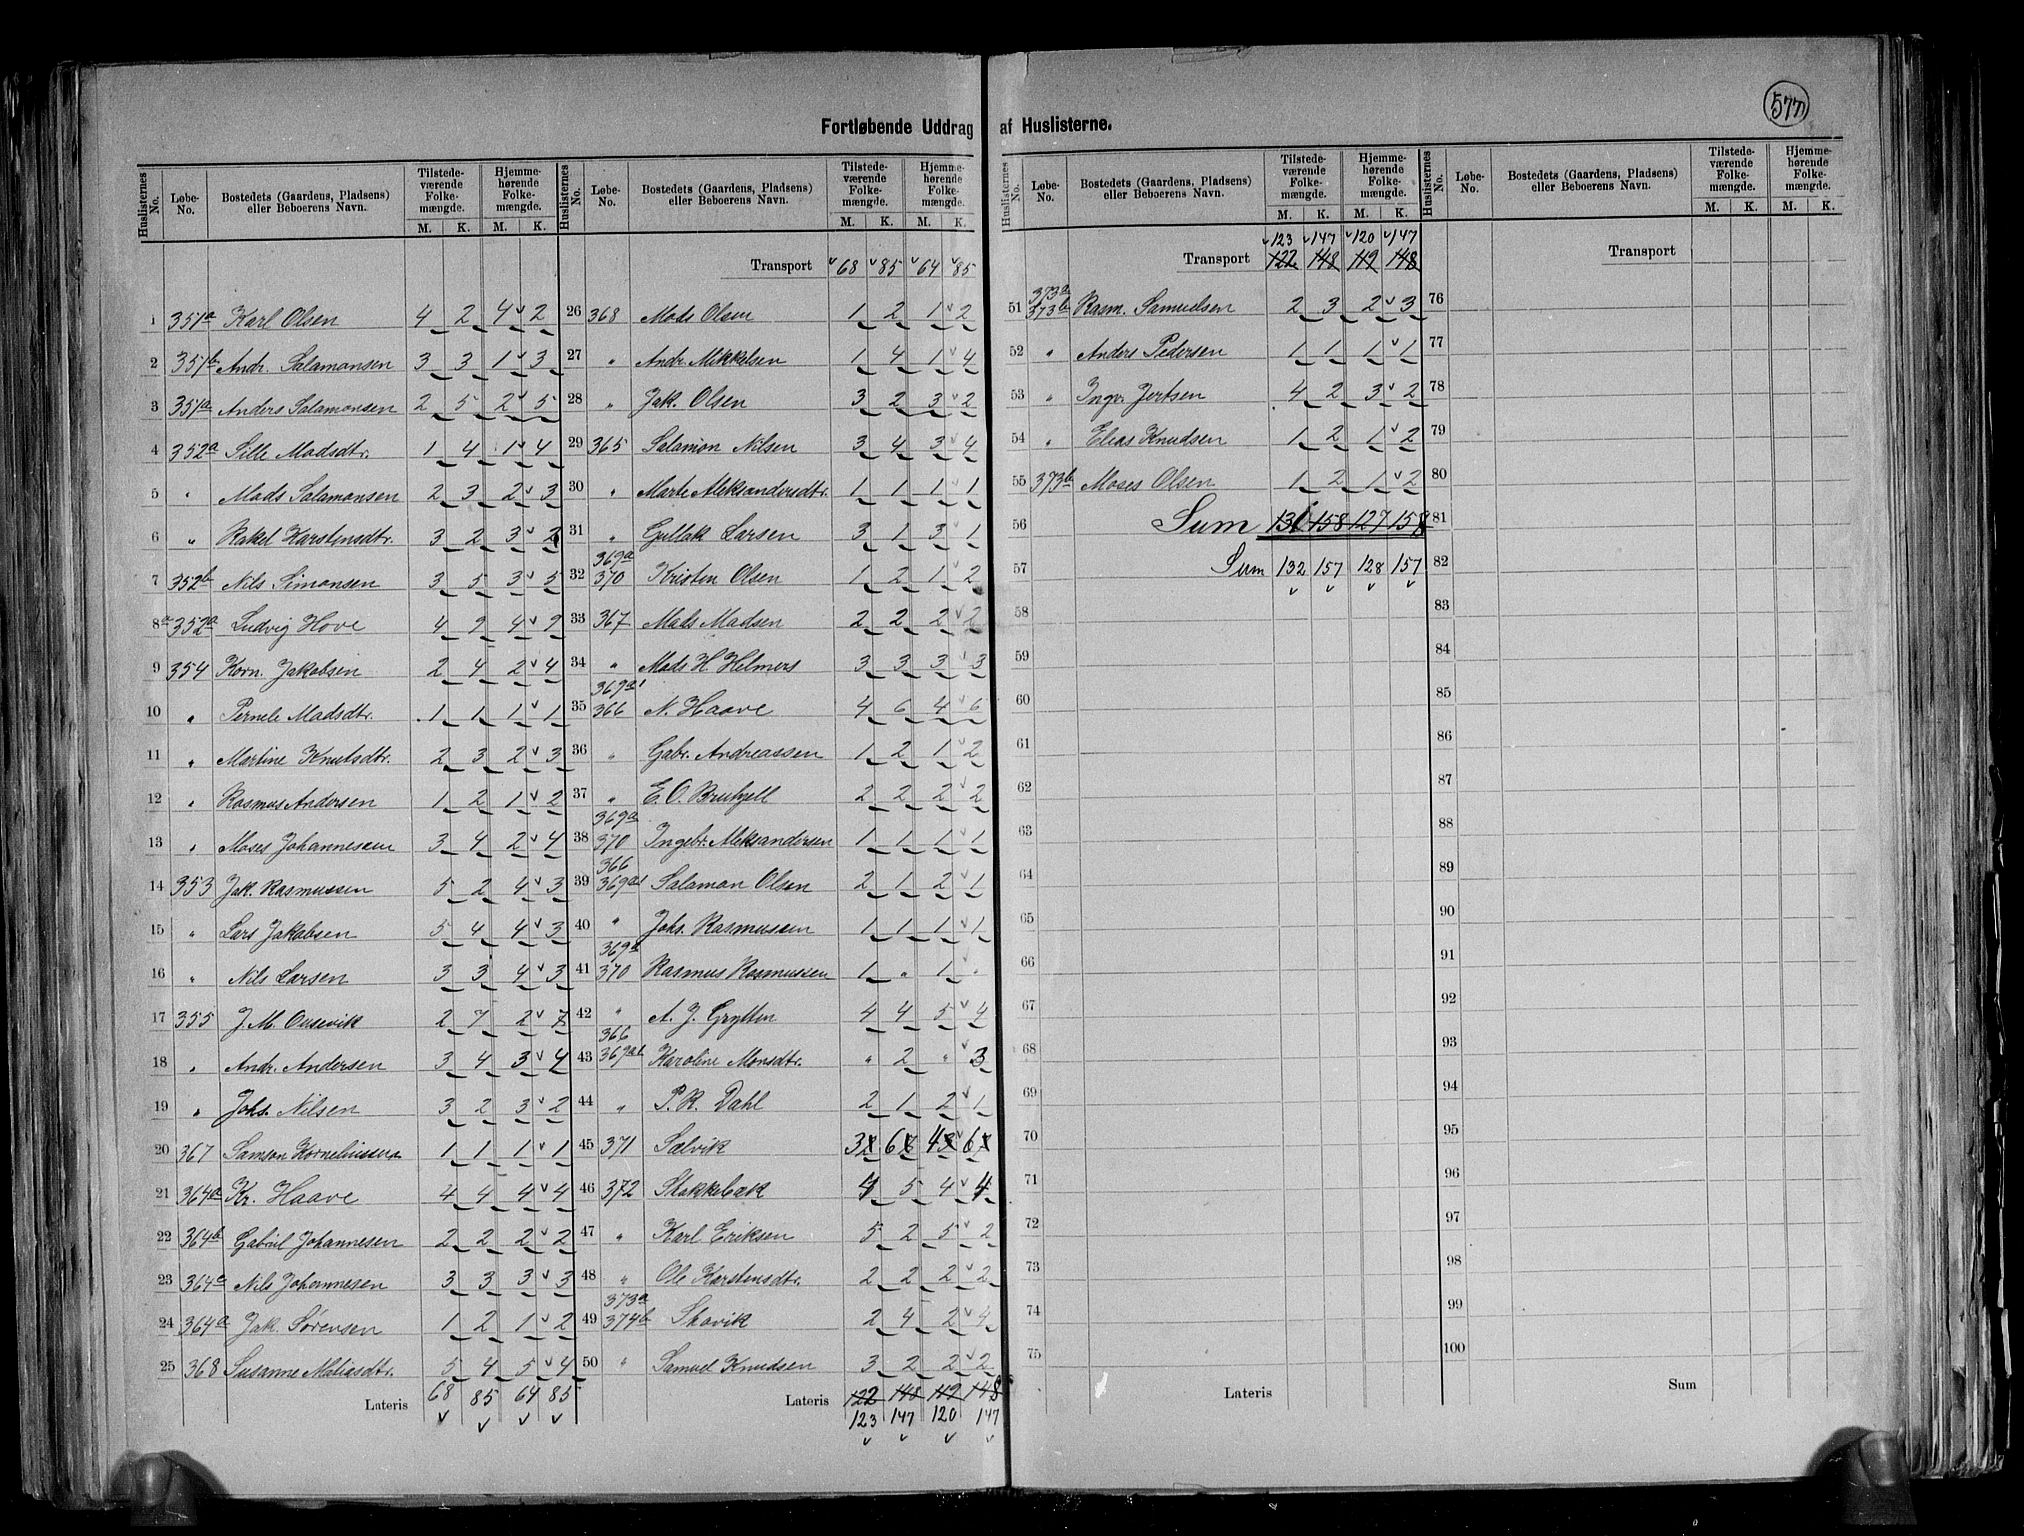 577
Fortløbende Uddrag af Huslisterne.
Huslisternes No. Løbe-No. Bostedets (Gaardens, Pladsens) eller Beboerens Navn. Tilstedeværende Folkemængde. M. K. Hjemmehørende Folkemængde. M. K.
1 351a Karl Olsen 4 2 4 2
2 351b Andr. Salamonsen 3 3 1 3
3 351a Anders Salamonsen 2 5 2 5
4 352a Sille Madsdtr. 1 4 1 4
5 " Mads Salamonsen 2 3 2 3
6 " Rakel Karstensdtr. 3 2 3 2
7 352b Nils Simonsen 3 5 3 5
8a 352a Ludvig Hove 4 9 4 9
9 354 Korn. Jakobsen 2 4 2 4
10 " Pernele Madsdtr. 1 1 1 1
11 " Martine Knutsdtr. 2 3 2 3
12 " Rasmus Andersen 1 2 1 2
13 " Moses Johannessen 3 4 2 4
14 353 Jak. Rasmussen 5 2 4 3
15 " Lars Jakobsen 5 4 4 3
16 " Nils Larsen 3 3 4 3
17 355 J. M. Ousevik 2 7 2 7
18 " Andr. Andersen 3 4 3 4
19 " Johs. Nilsen 3 2 3 2
20 367 Samson Korneliussen 1 1 1 1
21 364a Kr. Haave 4 4 4 4
22 364b Gabriel Johannesen 2 2 2 2
23 364a Nils Johannesen 3 3 3 3
24 364a Jak. Sørensen 1 2 1 2
25 368 Susanne Matiasdtr. 5 4 5 4
Lateris 68 85 64 85
Huslisternes No. Løbe-No. Bostedets (Gaardens, Pladsens) eller Beboerens Navn. Tilstedeværende Folkemængde. M. K. Hjemmehørende Folkemængde. M. K.
Transport 68 85 64 85
26 368 Mads Olsen 1 2 1 2
27 " Andr. Mikkelsen 1 4 1 4
28 " Jak. Olsen 3 2 3 2
29 365 Salamon Nilsen 3 4 3 4
30 " Marte Aleksandersdtr. 1 1 1 1
31 " Gullak Larsen 3 1 3 1
32 369a 370 Kristen Olsen 1 2 1 2
33 367 Mads Madsen 2 2 2 2
34 " Mads H. Helmers 3 3 3 3
35 369a1 366 N. Haave 4 6 4 6
36 " Gabr. Andreassen 1 2 1 2
37 " E. O. 2 2 2 2
38 369a 370 Ingebr. Aleksandersen 1 1 1 1
39 366 369a1 Salamon Olsen 2 1 2 1
40 " Johs. Rasmussen 1 1 1 1
41 369a 370 Rasmus Rasmussen 1 " 1 "
42 " A. J. Grytten 4 4 5 4
43 366 369a1 Karoline Monsdtr. " 2 " 3
44 " P. R. Dahl 2 1 2 1
45 371 Sælvik 3 6 4 6
46 372 Skakkebæk 4 5 4 4
47 " Karl Eriksen 5 2 5 2
48 " Ole Karstensdtr. 2 2 2 2
49 373a 374b Skavik 2 4 2 4
50 " Samuel Knudsen 3 2 2 2
Lateris 122 148 119 148
123 147 120 147
Huslisternes No. Løbe-No. Bostedets (Gaardens, Pladsens) eller Beboerens Navn. Tilstedeværende Folkemængde. M. K. Hjemmehørende Folkemængde. M. K.
123 147 120 147
Transport 122 148 119 148
51 373a 373b Rasm. Samuelsen 2 3 2 3
52 " Anders Pedersen 1 1 1 1
53 " Ingv. Jertsen 4 2 3 2
54 " Elias Knudsen 1 2 1 2
55 373b Moses Olsen 1 2 1 2
56 Sum 131 158 127 158
57 Sum 132 157 128 157
58
59
60
61
62
63
64
65
66
67
68
69
70
71
72
73
74
75
Lateris
Huslisternes No. Løbe-No. Bostedets (Gaardens, Pladsens) eller Beboerens Navn. Tilstedeværende Folkemængde. M. K. Hjemmehørende Folkemængde. M. K.
Transport
76
77
78
79
80
81
82
83
84
85
86
87
88
89
90
91
92
93
94
95
96
97
98
99
100
Sum